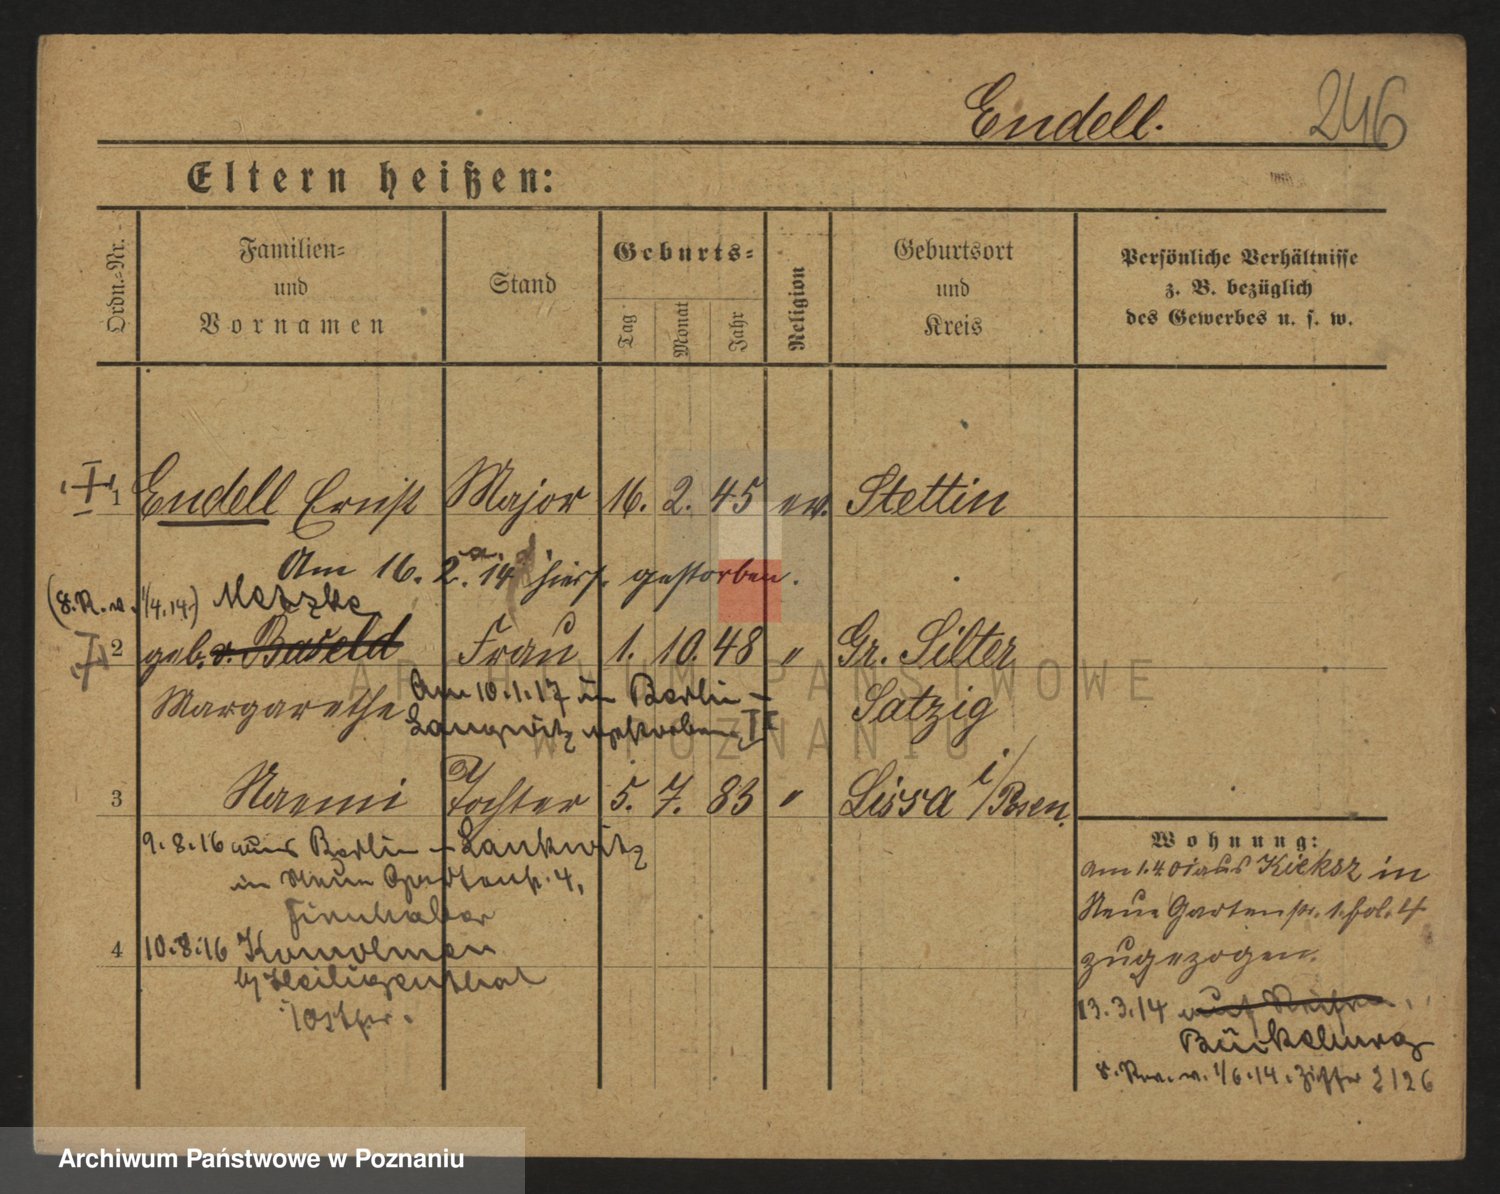 Endell. 246
Eltern heißen:
Ordn.=Nr.
Familien=
und
Vornamen
Stand
Geburts=
Tag
Monat
Jahr
Religion
Geburtsort
und
Kreis
Persönliche Verhältnisse
z. B. bezüglich
des Gewerbes u. s. w.
1 Endell Ernst Major 16. 2. 45 ev. Stettin
Am 16. 2. 14 hier gestorben.
1/4.14.) Metzke
2 geb. v. Frau 1. 10. 48 " Gr. Silber
Margarethe Am 10.1.17 in Berlin – Satzig
Langwitz gestorben
3 Naemi Tochter 5. 7. 83 " Lissa i/Posen.
9.8.16 aus Berlin – Lankwitz
in Neue Gartenstr. 4,
4 10.8.16
b/ Heiligenthal
Wohnung:
Am 1.4.01 aus Kieksz in
Neue Gartenstr. 1. Pol. 4
zugezogen.
13.3.14 auf Reisen
Bückeburg
v. 1/6.14. Ziffer 2126
ARCHIWUM PAŃSTWOWE
W POZNANIU
Archiwum Państwowe w Poznaniu